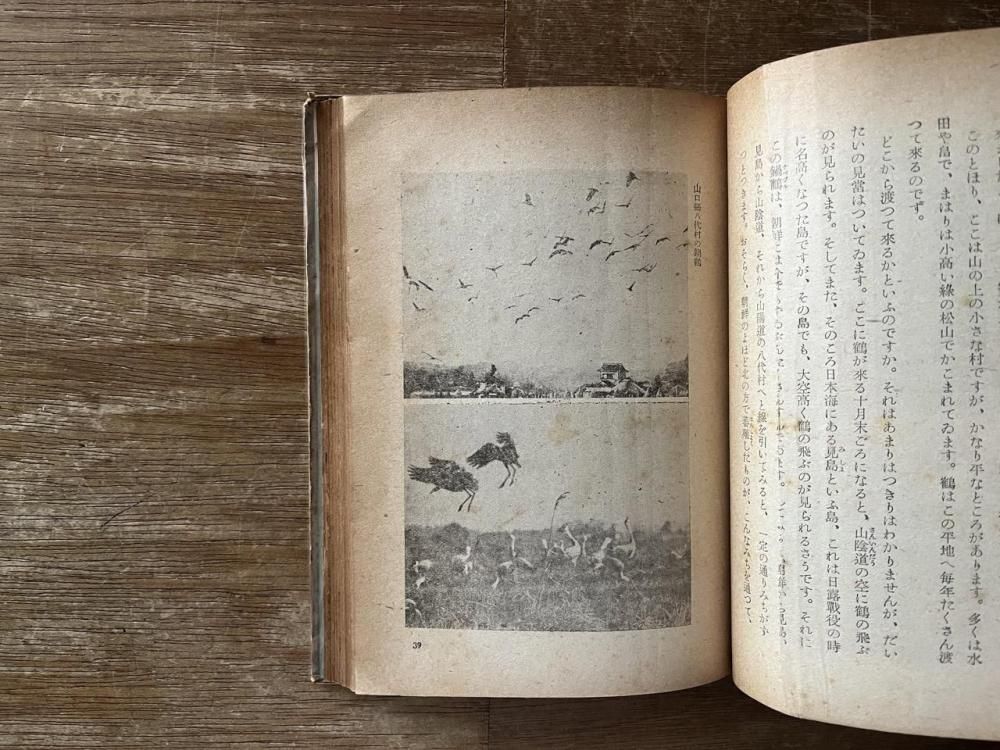 このとほり、ここは山の上の小さな村ですが、かなり平なところがあります。多くは水
田や畠で、まはりは小高い綠の松山でかこまれてゐます。鶴はこの平地へ毎年たくさん渡
つて來るのです。
どこから渡つて來るかといふのですか。それはあまりはつきりはわかりませんが、だい
たいの見當はついてゐます。ここに鶴が來る十月末ごろになると、山陰道の空に鶴の飛ぶ
のが見られます。そしてまた、そのころ日本海にある見島といふ島、これは日露戰役の時
に名高くなつた島ですが、その島でも、大空高く鶴の飛ぶのが見られるさうです。それに
この鍋鶴は、朝鮮には今でも ます。 見島、
見島から山陰道、それから山陽道の八代村へと線を引いてみると、一定の通りみちがす
つとつきます。おそらく、朝鮮のよほど北の方で蕃殖したものが、こんなみちを通つて、
山口縣八代村の鍋鶴
39